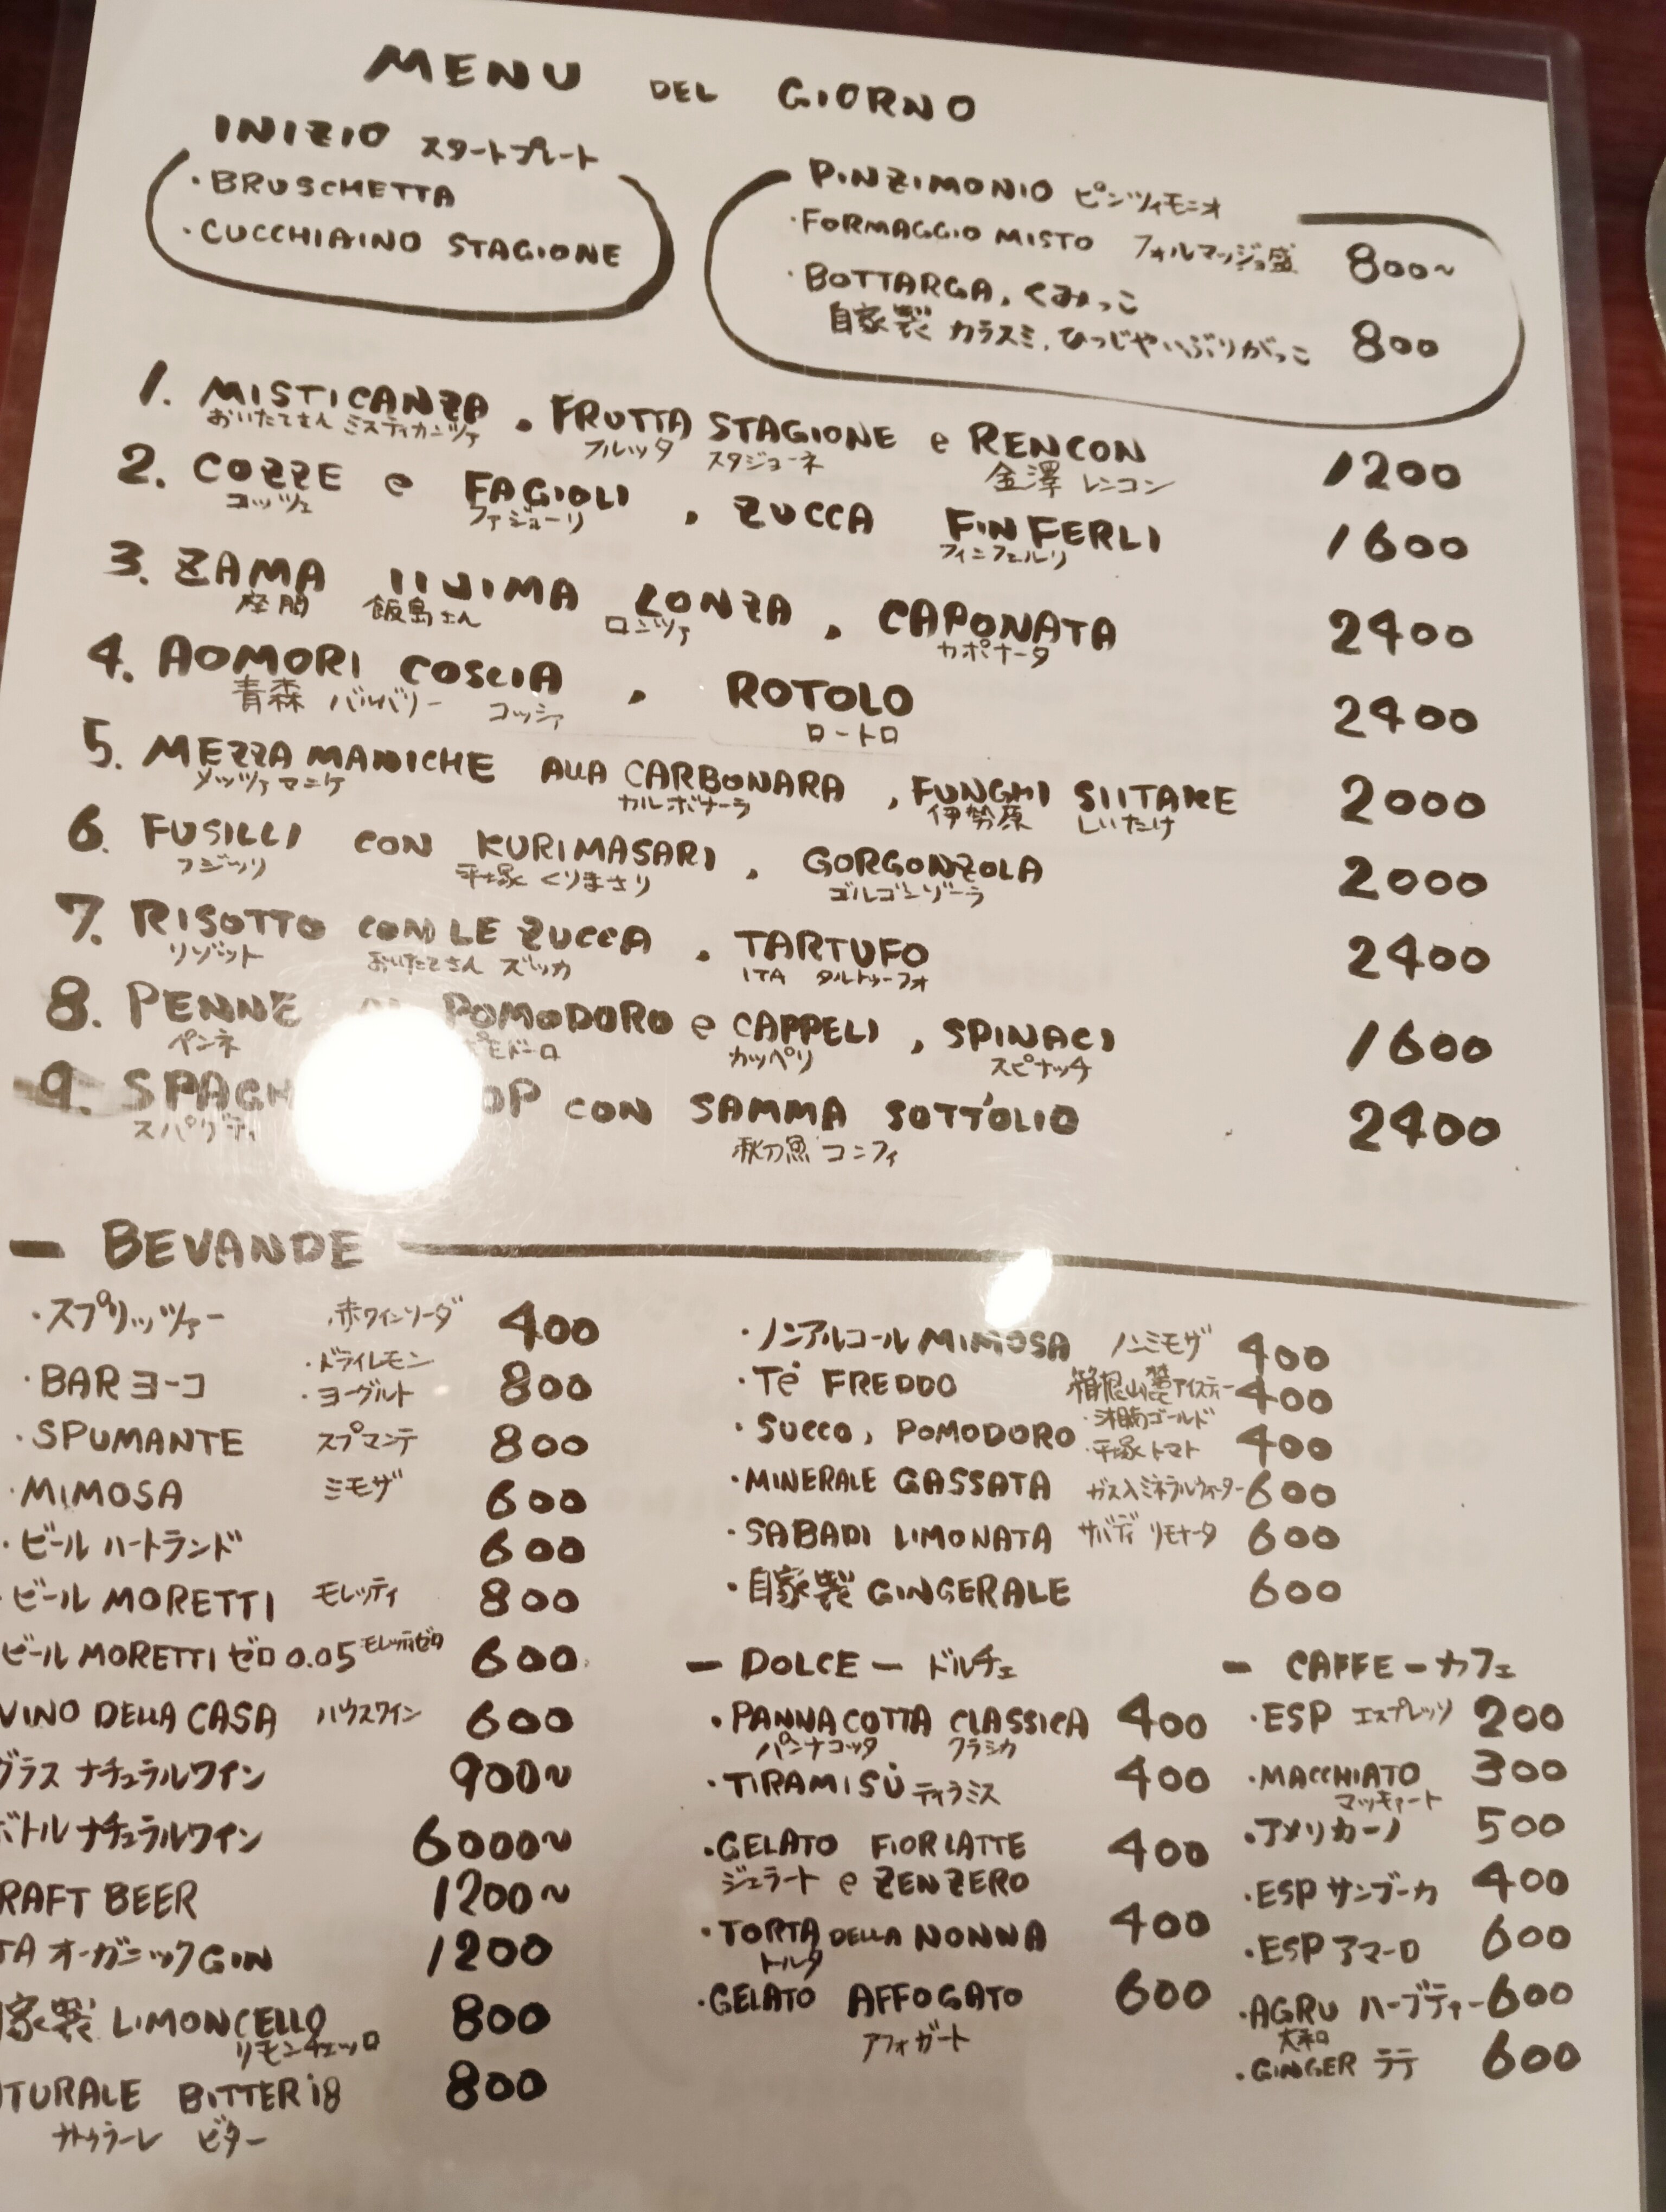 MENU DEL GIORNO
INIZIO スタートプレート
・BRUSCHETTA
・CUCCHIAINO STAGIONE
PINZIMONIO ピンツィモニオ
・FORMAGGIO MISTO フォルマッジョ盛 800~
・BOTTARGA, くみっこ
自家製 カラスミ, ひつじやいぶりがっこ 800
1. MISTICANZA, FRUTTA STAGIONE e RENCON 1200
おいたてさん ミスティカンツァ フルッタ スタジョーネ 金澤 レンコン
2. COZZE e FAGIOLI, ZUCCA FINFERLI 1600
コッツェ ファジョーリ フィンフェルリ
3. ZAMA IIJIMA LONZA, CAPONATA 2400
座間 飯島さん ロンツァ カポナータ
4. AOMORI COSCIA, ROTOLO 2400
青森 バルバリー コッシァ ロートロ
5. MEZZA MANICHE ALLA CARBONARA, FUNGHI SIITAKE 2000
メッツァマニケ カルボナーラ 伊勢原 しいたけ
6. FUSILLI CON KURIMASARI, GORGONZOLA 2000
フジッリ 平塚 くりまさり ゴルゴンゾーラ
7. RISOTTO CON LE ZUCCA, TARTUFO 2400
リゾット おいたてさん ズッカ ITA タルトゥーフォ
8. PENNE POMODORO e CAPPELI, SPINACI 1600
ペンネ ポモドーロ カッペリ スピナッチ
9. SPAGH OP CON SAMMA SOTT'OLIO 2400
スパゲティ 秋刀魚 コンフィ
ー BEVANDE
・スプリッツァー ・赤ワインソーダ 400
・BAR ヨーコ ・ドライレモン ・ヨーグルト 800
・SPUMANTE スプマンテ 800
・MIMOSA ミモザ 600
・ビール ハートランド 600
・ビール MORETTI モレッティ 800
ビール MORETTI ゼロ 0.05 モレッティゼロ 600
VINO DELLA CASA ハウスワイン 600
グラス ナチュラルワイン 900~
ボトル ナチュラルワイン 6000~
RAFT BEER 1200~
TA オーガニックGIN 1200
家製 LIMONCELLO 800
リモンチェッロ
TURALE BITTER i8 800
ナトゥラーレ ビター
・ノンアルコール MIMOSA ノンミモザ 400
・Té FREDDO 箱根山麓アイスティー 400
・SUCCO, POMODORO ・湘南ゴールド ・平塚トマト 400
・MINERALE GASSATA ガス入ミネラルウォーター 600
・SABADI LIMONATA サバディ リモナータ 600
・自家製 GINGERALE 600
ー DOLCE ー ドルチェ
・PANNACOTTA CLASSICA 400
パンナコッタ クラシカ
・TIRAMISÙ ティラミス 400
・GELATO FIORLATTE 400
ジェラート e ZENZERO
・TORTA DELLA NONNA 400
トルタ
・GELATO AFFOGATO 600
アフォガート
ー CAFFE ー カフェ
・ESP エスプレッソ 200
・MACCHIATO 300
マッキァート
・アメリカーノ 500
・ESP サンブーカ 400
・ESP アマーロ 600
・AGRU ハーブティー 600
大和
・GINGER ラテ 600